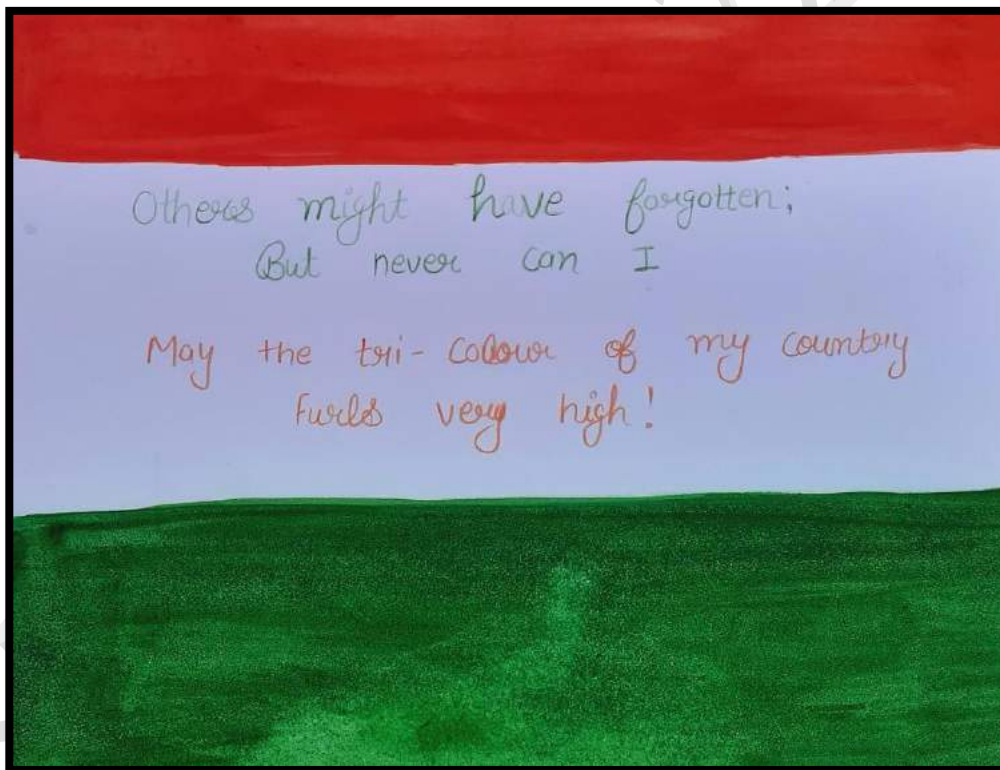 Others might have forgotten;
But never can I
May the tri-colour of my country
furls very high!